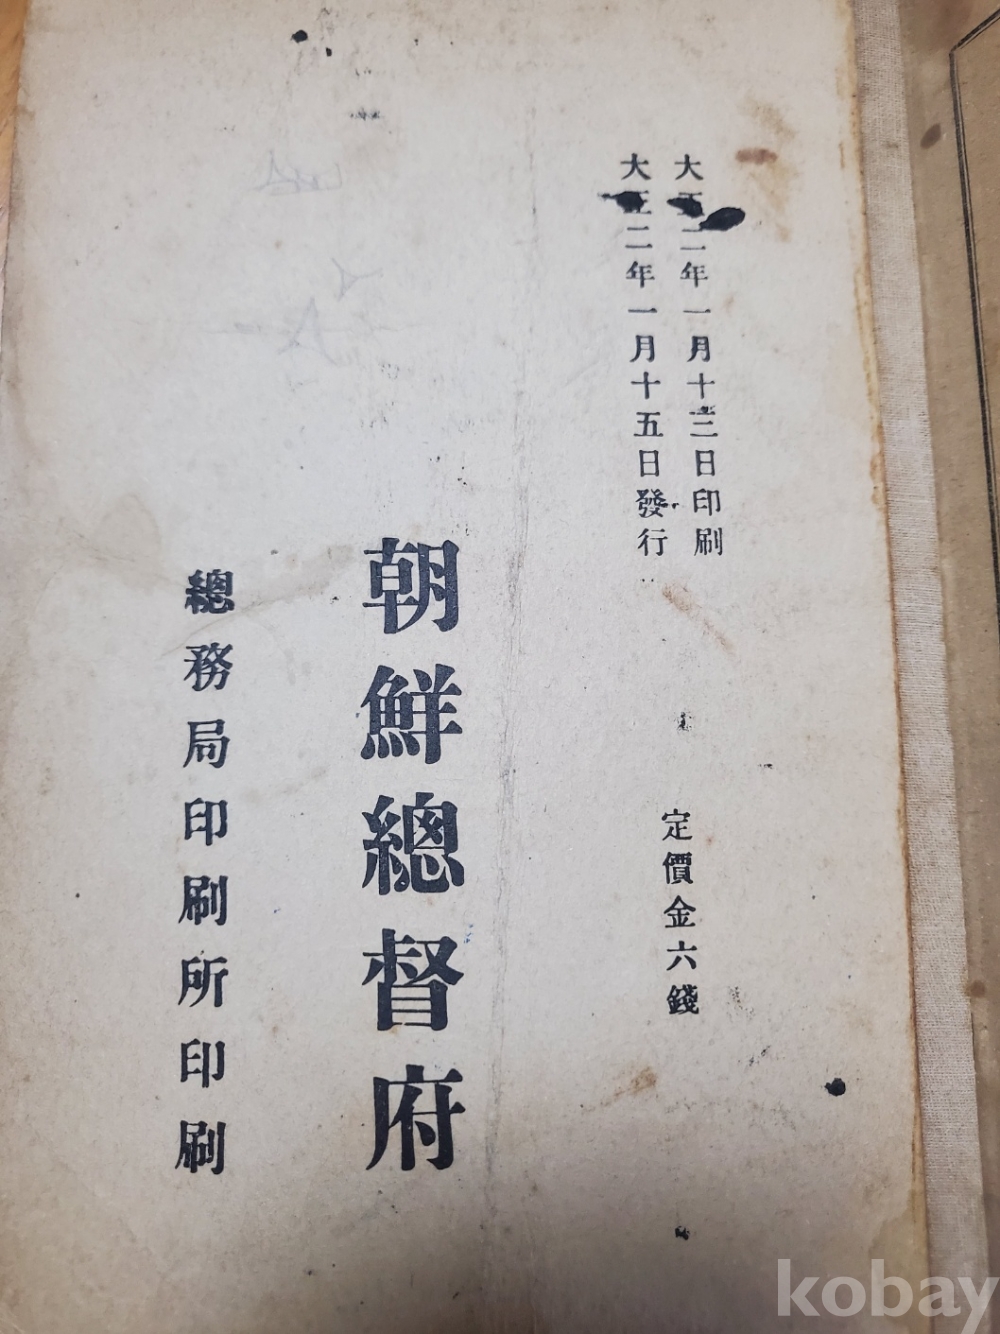 大正二年一月十三日印刷
大正二年一月十五日發行
定價金六錢
朝鮮總督府
總務局印刷所印刷
kobay